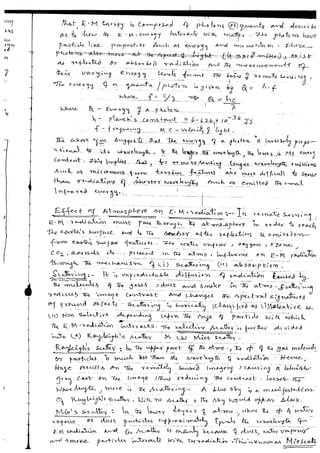 that E.M energy is composed of photons (or) quanta and describes
as to how the E.M. energy interacts with matter. The photons have
particle like properties such as energy and momentum. These
photons also move at the speed of light exist
as reflected or absorbed radiation and the measurement of
their varying energy levels forms the basis of remote sensing.
The energy of a quanta / photon is given by Q = h.f
where f = c/λ → Q = hc/λ
where Q - Energy of a photon
h - planck's constant = 6.626 x 10⁻³⁴ Js
f - frequency c - velocity of light.
The above eqn suggests that the energy of a photon is inversely propor-
-tional to its wavelength. ie the longer the wavelength, the lower is its energy
content. This implies that, for remote sensing longer wavelength emissions
such as microwaves from terrain features are more difficult to sense
than radiations of shorter wavelengths such as emitted thermal
Infrared energy.
Effect of Atmosphere on E.M. radiation :- In remote sensing,
E.M. radiation must pass through the atmosphere in order to reach
the earth's surface and to the sensor after reflection & emission
from earth surface features. The water vapour, oxygen, ozone,
CO₂, aerosols etc. present in the atmo. influence on E.M radiation
through the mechanism of (i) scattering (ii) absorption.
Scattering :- It is unpredictable diffusion of radiation caused by
the molecules of the gases, dust and smoke in the atmo. Scattering
reduces the image contrast and changes the spectral signatures
of ground objects. Scattering is basically classified as (i) Selective &
(ii) Non selective depending upon the size of particle with which
the E.M. radiation interacts. The selective scatter is further divided
into (a) Rayleigh's scatter & (b) Mies scatter.
Rayleigh's Scatter : In the upper part of the atmo, the of the gas molecules
or particles is much less than the wavelength of radiation. Hence,
Haze results on the remotely sensed imagery, causing a bluish
grey cast on the image thus reducing the contrast. Lesser the
wavelength, more is the scattering. A blue sky is a manifestation
of Rayleigh's scatter. With no scatter the sky would appear black.
Mie's Scatter : In the lower layers of atmo, where the of water
vapour or dust particles approximately equals the wavelength of
EM radiation and the scatter is mainly because of dust, water vapours
and smoke particles interacts with the radiation. This is known as Mie scatter